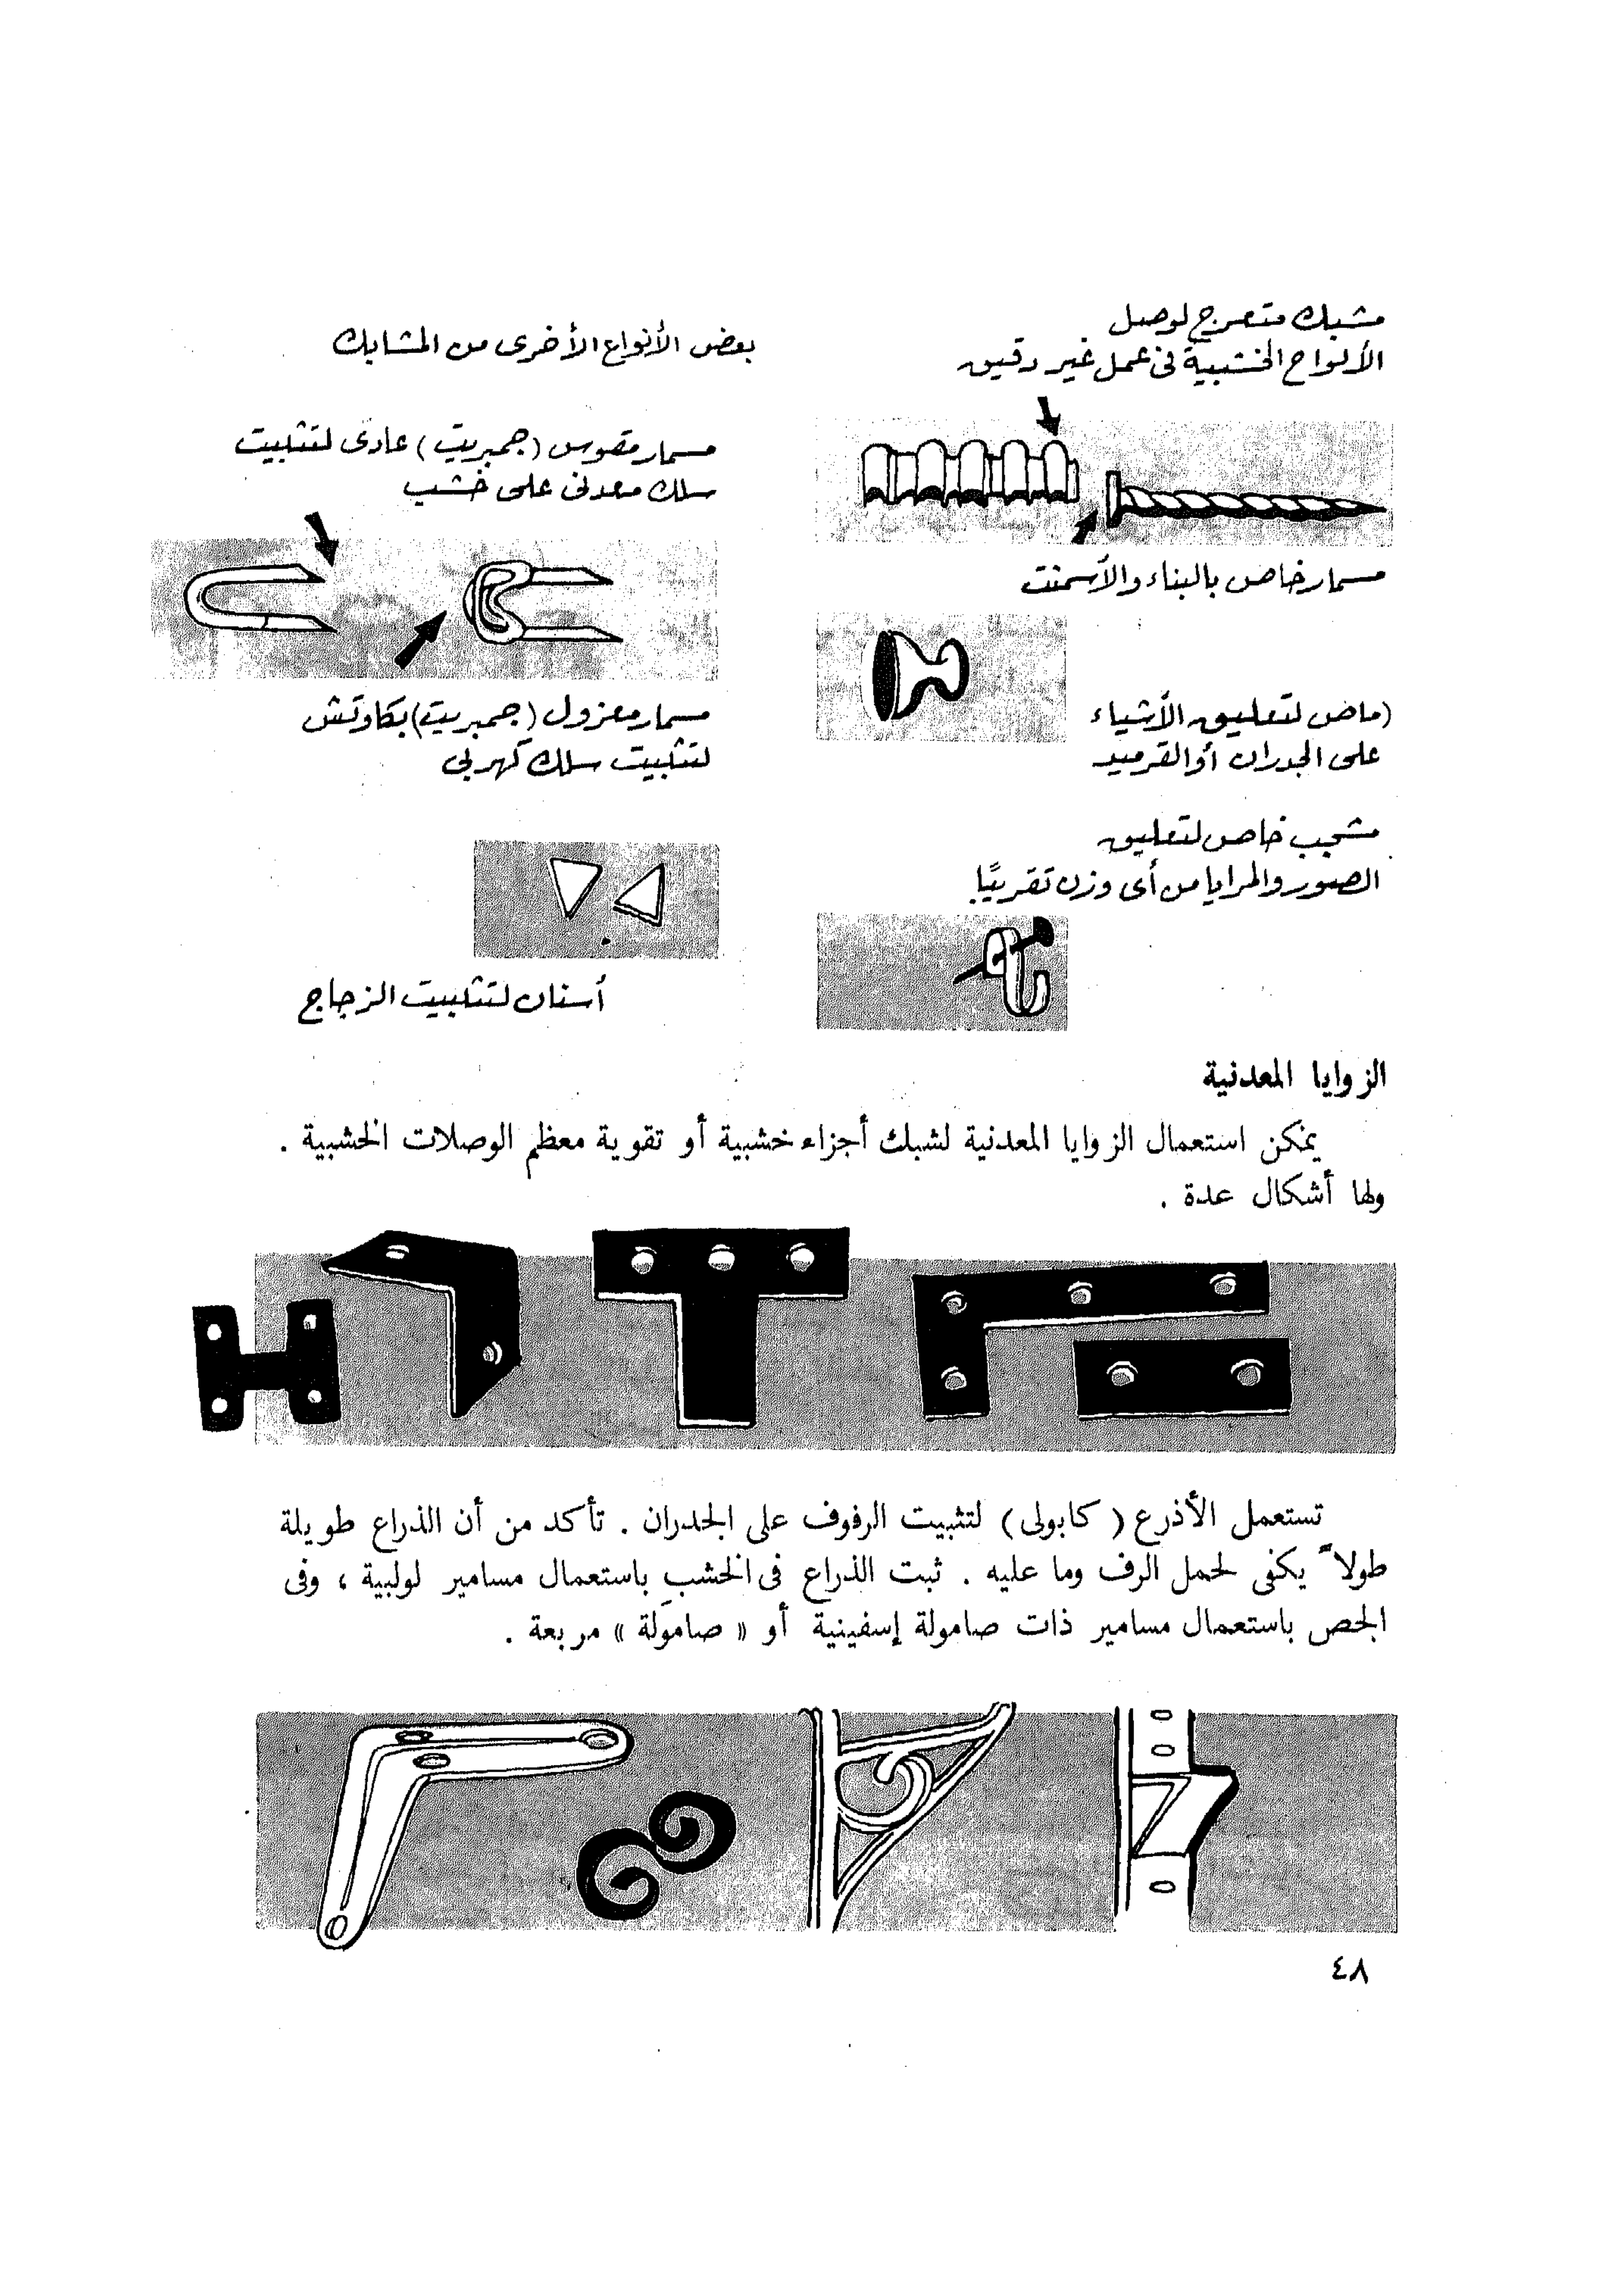 مشبك متعرج لوصل
الألواح الخشبية فى عمل غير دقيق
مسمار خاص بالبناء والأسمنت
(ماص لتعليق الأشياء
على الجدران أو القرميد
مشجب خاص لتعليق
الصور والمرايا من أى وزن تقريبًا
بعض الأنواع الأخرى من المشابك
مسمار مقوس (جمبريت) عادى لتثبيت
سلك معدنى على خشب
مسمار معزول (جمبريت) بكاوتش
لتثبيت سلك كهربى
أسنان لتثبيت الزجاج
الزوايا المعدنية
يمكن استعمال الزوايا المعدنية لشبك أجزاء خشبية أو تقوية معظم الوصلات الخشبية .
ولها أشكال عدة .
تستعمل الأذرع ( كابولى ) لتثبيت الرفوف على الجدران . تأكد من أن الذراع طويلة
طولاً يكفى لحمل الرف وما عليه . ثبت الذراع فى الخشب باستعمال مسامير لولبية ، وفى
الجص باستعمال مسامير ذات صامولة إسفينية أو « صامولة » مربعة .
٤٨